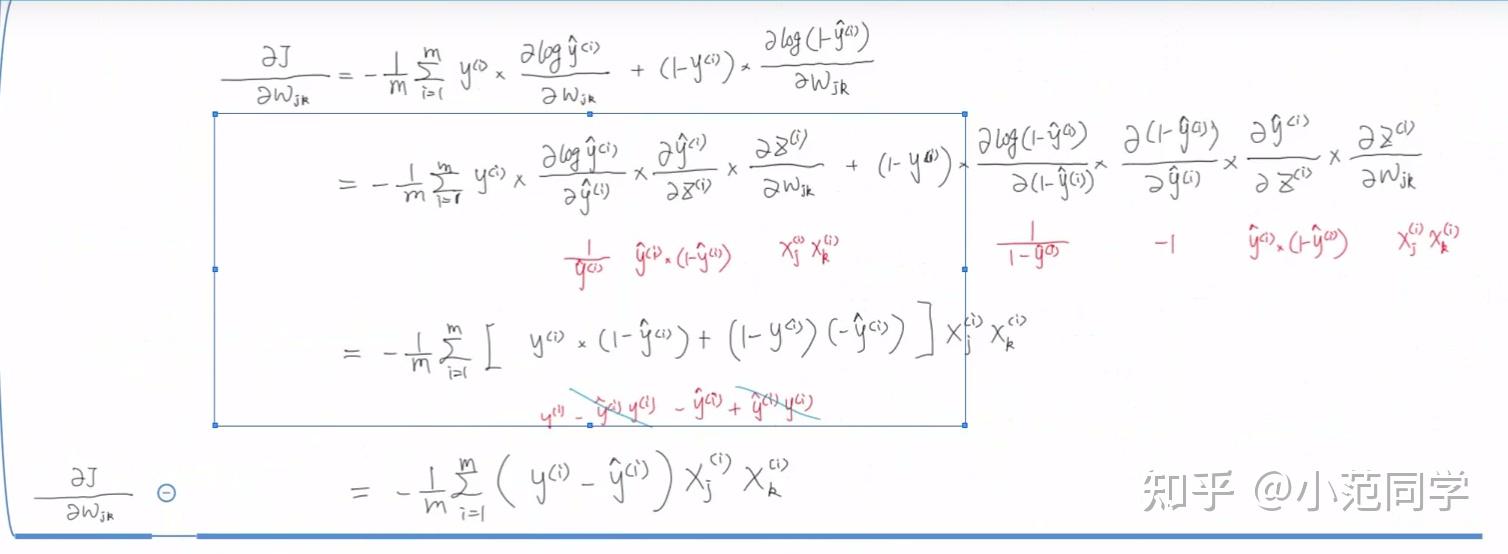 ∂J/∂w_jk = -1/m Σ_{i=1}^{m} y^(i) × ∂log ŷ^(i)/∂w_jk + (1-y^(i)) × ∂log(1-ŷ^(i))/∂w_jk
= -1/m Σ_{i=1}^{m} y^(i) × ∂log ŷ^(i)/∂ŷ^(i) × ∂ŷ^(i)/∂z^(i) × ∂z^(i)/∂w_jk + (1-y^(i)) × ∂log(1-ŷ^(i))/∂(1-ŷ^(i)) × ∂(1-ŷ^(i))/∂ŷ^(i) × ∂ŷ^(i)/∂z^(i) × ∂z^(i)/∂w_jk
1/ŷ^(i) ŷ^(i) × (1-ŷ^(i)) x_j^(i) x_k^(i) 1/(1-ŷ^(i)) -1 ŷ^(i) × (1-ŷ^(i)) x_j^(i) x_k^(i)
= -1/m Σ_{i=1}^{m} [ y^(i) × (1-ŷ^(i)) + (1-y^(i)) (-ŷ^(i)) ] x_j^(i) x_k^(i)
y^(i) - ŷ^(i) y^(i) - ŷ^(i) + ŷ^(i) y^(i)
∂J/∂w_jk = -1/m Σ_{i=1}^{m} ( y^(i) - ŷ^(i) ) x_j^(i) x_k^(i)
知乎 @小范同学